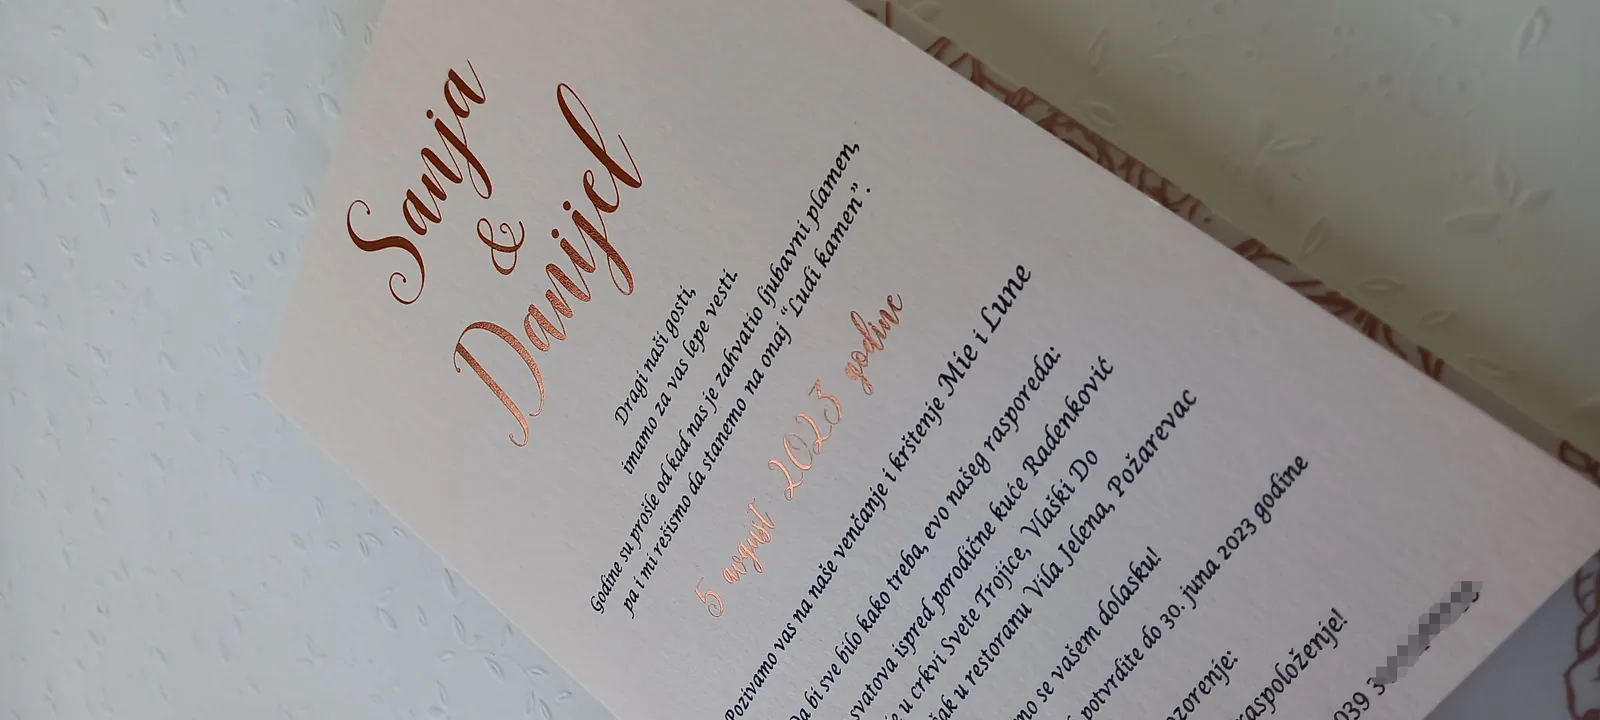 Sanja
&
Danijel
Dragi naši gosti,
imamo za vas lepe vesti.
Godine su prošle od kad nas je zahvatio ljubavni plamen,
pa i mi rešismo da stanemo na onaj “Ludi kamen”.
5 avgust 2023 godine
Pozivamo vas na naše venčanje i krštenje Mie i Lune
Da bi sve bilo kako treba, evo našeg rasporeda:
svatova ispred porodične kuće Radenković
u crkvi Svete Trojice, Vlaški Do
u restoranu Vila Jelena, Požarevac
se vašem dolasku!
potvrdite do 30. juna 2023 godine